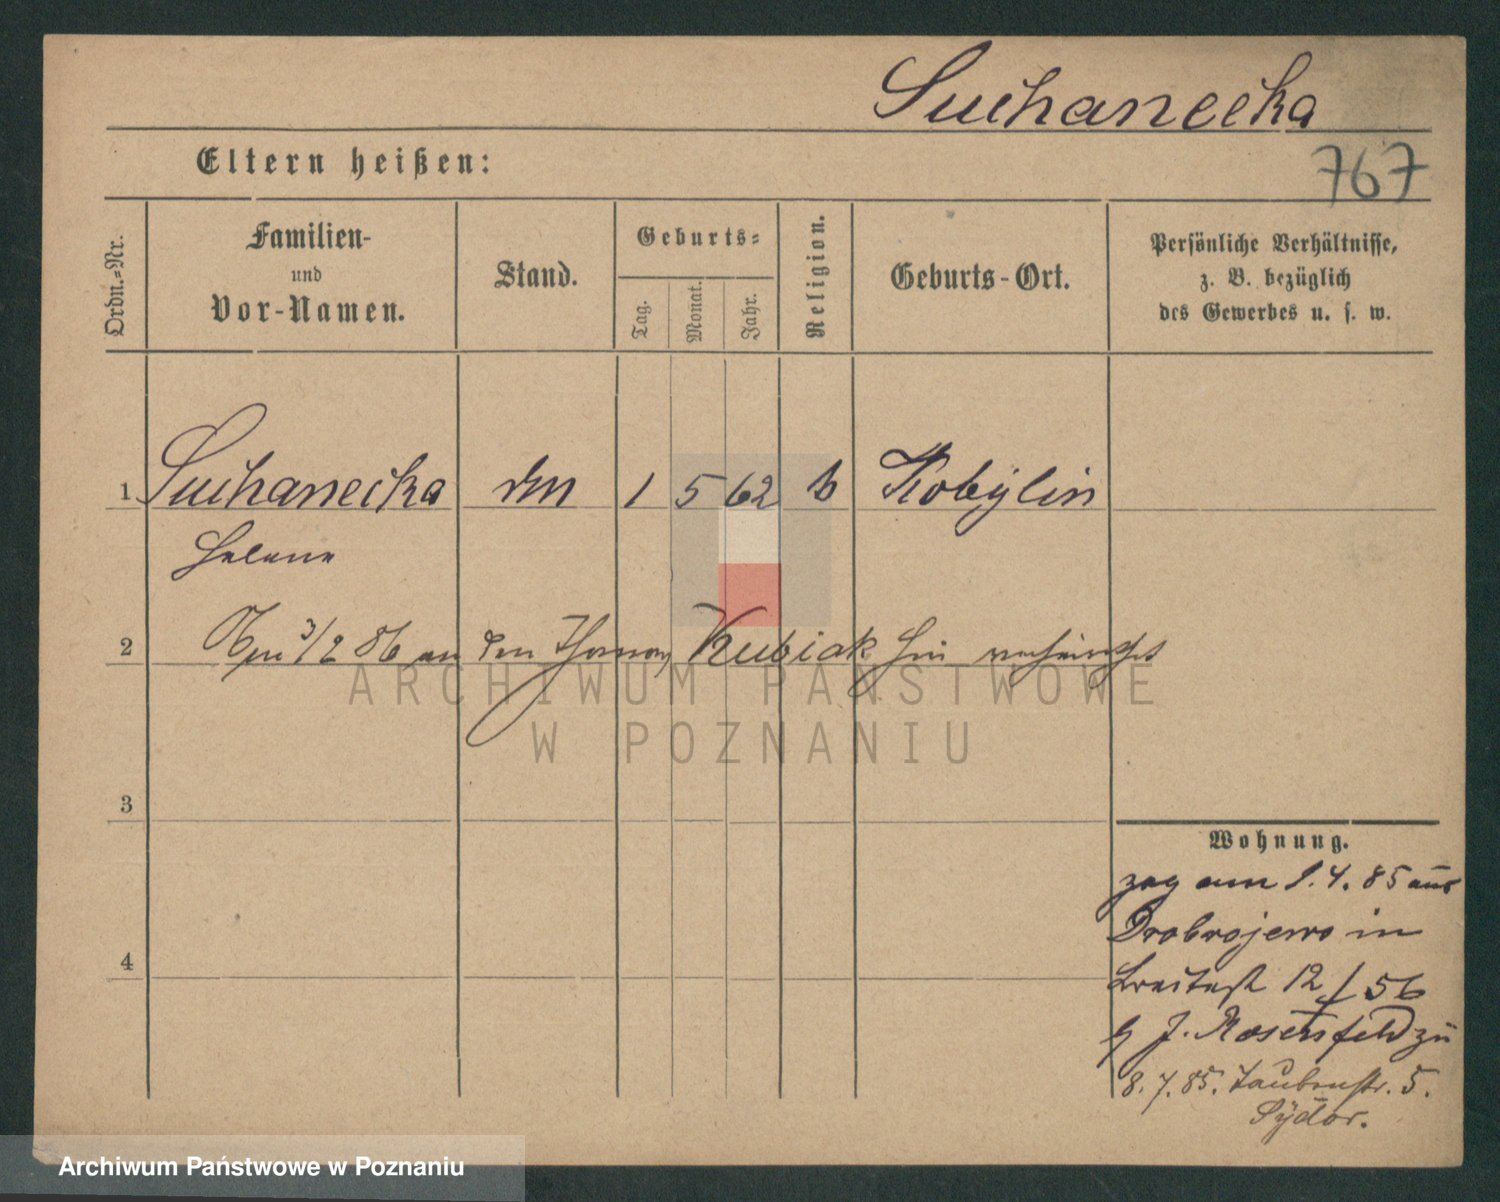 Suchanecka
767
Eltern heißen:
Ordn.=Nr.
Familien-
und
Vor-Namen.
Stand.
Geburts=
Tag.
Monat.
Jahr.
Religion.
Geburts-Ort.
Persönliche Verhältnisse,
z. B. bezüglich
des Gewerbes u. s. w.
1 Suchanecka 1 5 62 Kobylin
Helene
2 3/2 86 an den Thomas Kubiak hier verheirathet
ARCHIWUM PAŃSTWOWE
W POZNANIU
3
Wohnung.
zog am 1.4.85 aus
Drobrojewo in
4
Breitestr 12/56
b J. Rosensfeld zu
8.7.85. Taubenstr. 5.
Sydor.
Archiwum Państwowe w Poznaniu